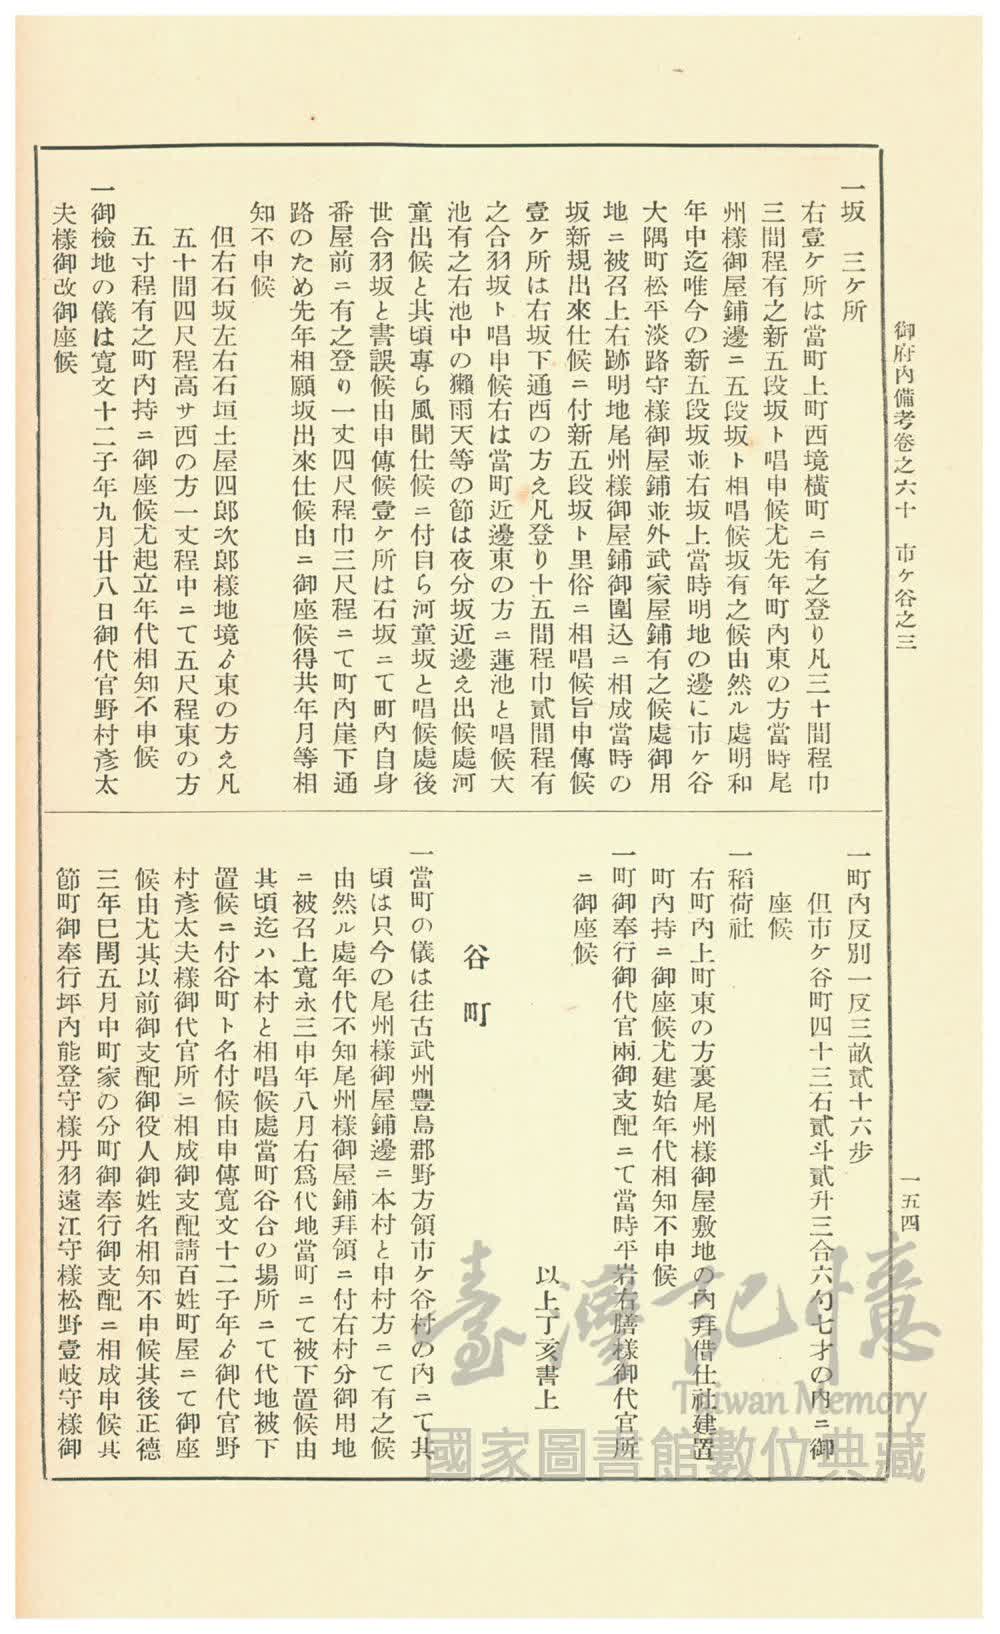 御府內備考卷之六十　市ヶ谷之三
一五四
一坂　三ヶ所
右壹ヶ所は當町上町西境橫町ニ有之登り凡三十間程巾
三間程有之新五段坂ト唱申候尤先年町內東の方當時尾
州樣御屋鋪邊ニ五段坂ト相唱候坂有之候由然ル處明和
年中迄唯今の新五段坂並右坂上當時明地の邊に市ヶ谷
大隅町松平淡路守樣御屋鋪並外武家屋鋪有之候處御用
地ニ被召上右跡明地尾州樣御屋鋪御圍込ニ相成當時の
坂新規出來仕候ニ付新五段坂ト里俗ニ相唱候旨申傳候
壹ヶ所は右坂下通西の方え凡登り十五間程巾貳間程有
之合羽坂ト唱申候右は當町近邊東の方ニ蓮池と唱候大
池有之右池中の獺雨天等の節は夜分坂近邊え出候處河
童出候と其頃專ら風聞仕候ニ付自ら河童坂と唱候處後
世合羽坂と書誤候由申傳候壹ヶ所は石坂ニて町內自身
番屋前ニ有之登り一丈四尺程巾三尺程ニて町內崖下通
路のため先年相願坂出來仕候由ニ御座候得共年月等相
知不申候
但右石坂左右石垣土屋四郎次郎樣地境ゟ東の方え凡
五十間四尺程高サ西の方一丈程中ニて五尺程東の方
五寸程有之町內持ニ御座候尤起立年代相知不申候
一御檢地の儀は寬文十二子年九月廿八日御代官野村彥太
夫樣御改御座候
一町內反別一反三畝貳十六步
但市ヶ谷町四十三石貳斗貳升三合六勺七才の內ニ御
座候
一稻荷社
右町內上町東の方裏尾州樣御屋敷地の內拜借仕社建置
町內持ニ御座候尤建始年代相知不申候
一町御奉行御代官兩御支配ニて當時平岩右膳樣御代官所
ニ御座候
以上丁亥書上
谷町
一當町の儀は往古武州豐島郡野方領市ヶ谷村の內ニて其
頃は只今の尾州樣御屋鋪邊ニ本村と申村方ニて有之候
由然ル處年代不知尾州樣御屋鋪拜領ニ付右村分御用地
ニ被召上寬永三申年八月右爲代地當町ニて被下置候由
其頃迄ハ本村と相唱候處當町谷合の場所ニて代地被下
置候ニ付谷町ト名付候由申傳寬文十二子年ゟ御代官野
村彥太夫樣御代官所ニ相成御支配請百姓町屋ニて御座
候由尤其以前御支配御役人御姓名相知不申候其後正德
三年巳閏五月中町家の分町御奉行御支配ニ相成申候其
節町御奉行坪內能登守樣丹羽遠江守樣松野壹岐守樣御
臺灣記憶
Taiwan Memory
國家圖書館數位典藏